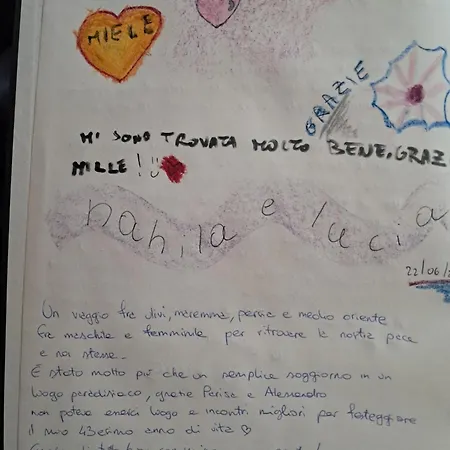 MIELE
GRAZIE
MI SONO TROVATA MOLTO BENE, GRAZ
MILLE!
nahila e lucia
22/06/
Un viaggio fra ulivi, maremma, persia e medio oriente
fra maschile e femminile per ritrovare la nostra pace
e noi stesse.
È stato molto più che un semplice soggiorno in un
luogo paradisiaco, grazie Parisa e Alessandro
non poteva esserci luogo e incontri migliori per festeggiare
il mio 43esimo anno di vita ♡